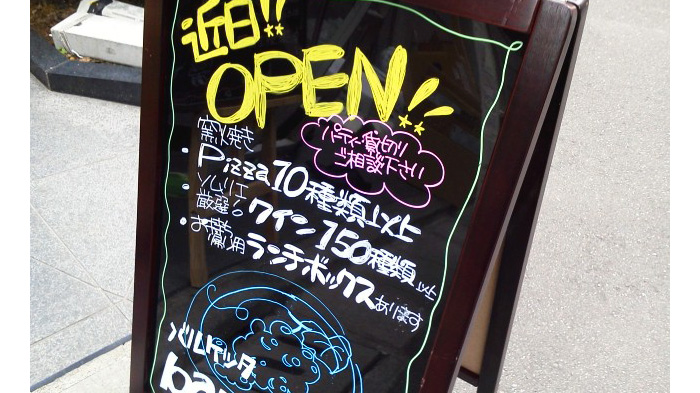 近日!!
OPEN!!
パーティー・貸切り
ご相談下さい
窯焼き
・Pizza 10種類以上
・ソムリエ
厳選の ワイン 150種類以上
・お持ち帰り用 ランチボックスあります
バルケッタ
ba